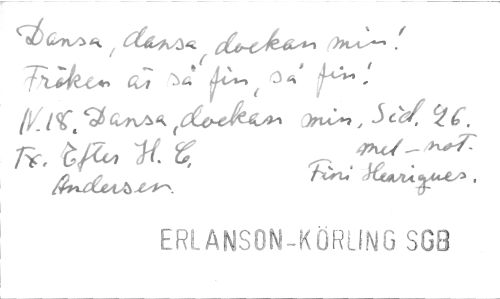 Dansa, dansa, dockan min!
Fröken är så fin, så fin!
N.18. Dansa, dockan min, Sid. 26.
Tx. Efter H. C. mel-not.
Andersen. Fini Henriques.
ERLANSON-KÖRLING SGB